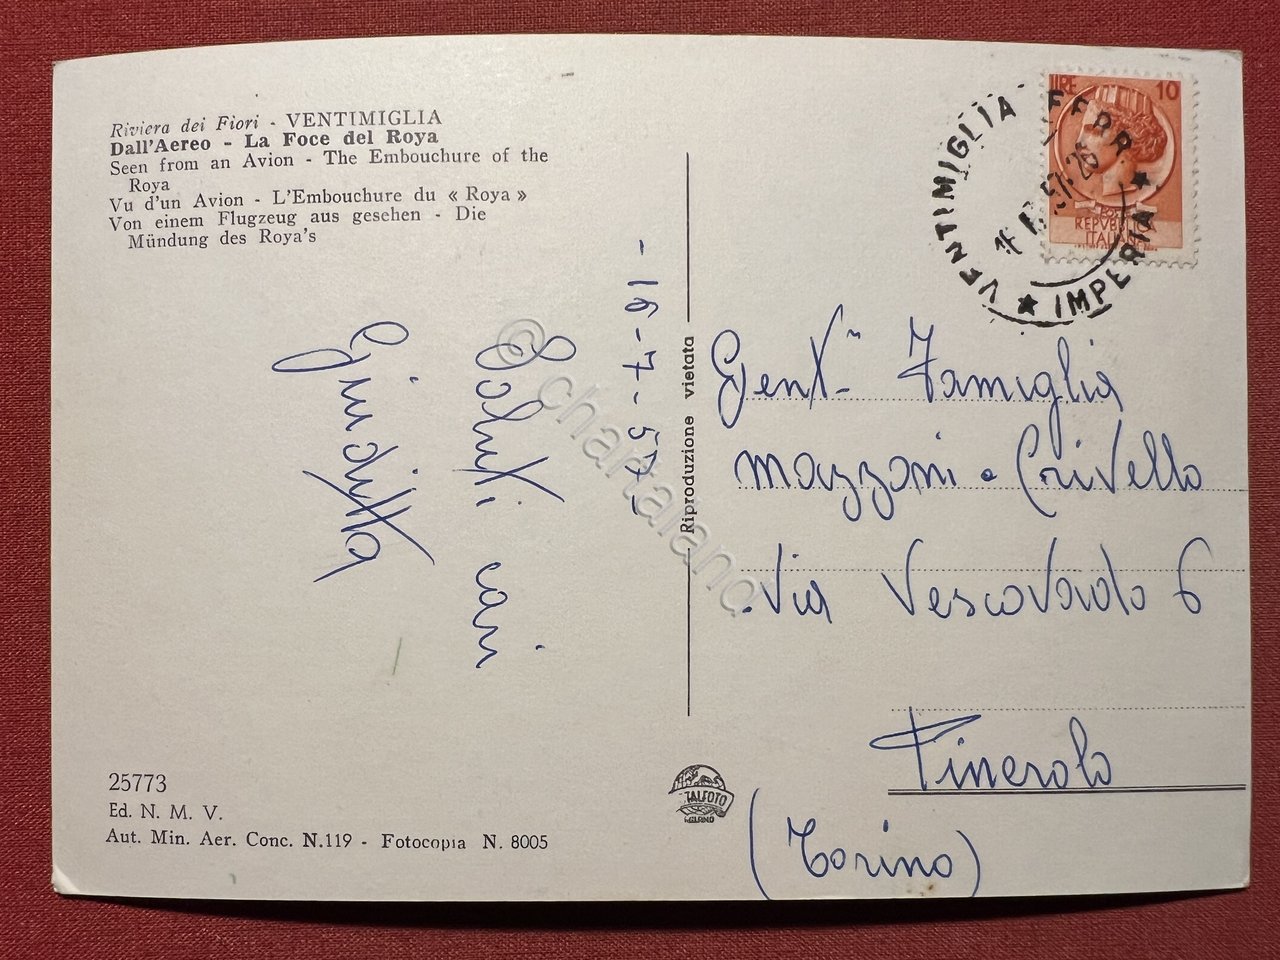 Riviera dei Fiori - VENTIMIGLIA
Dall'Aereo - La Foce del Roya
Seen from an Avion - The Embouchure of the
Roya
Vu d'un Avion - L'Embouchure du « Roya »
Von einem Flugzeug aus gesehen - Die
Mündung des Roya's
- 16-7-57-
Saluti cari
Giuditta
25773
Ed. N. M. V.
Aut. Min. Aer. Conc. N.119 - Fotocopia N. 8005
Riproduzione vietata
ITALFOTO
MILANO
LIRE 10
REPVBBLICA
ITALIANA
VENTIMIGLIA FERR.
★ IMPERIA ★
Gent.ma Famiglia
Mazzoni e Crivello
Via Vescovado 6
Pinerolo
(Torino)
© chartaland